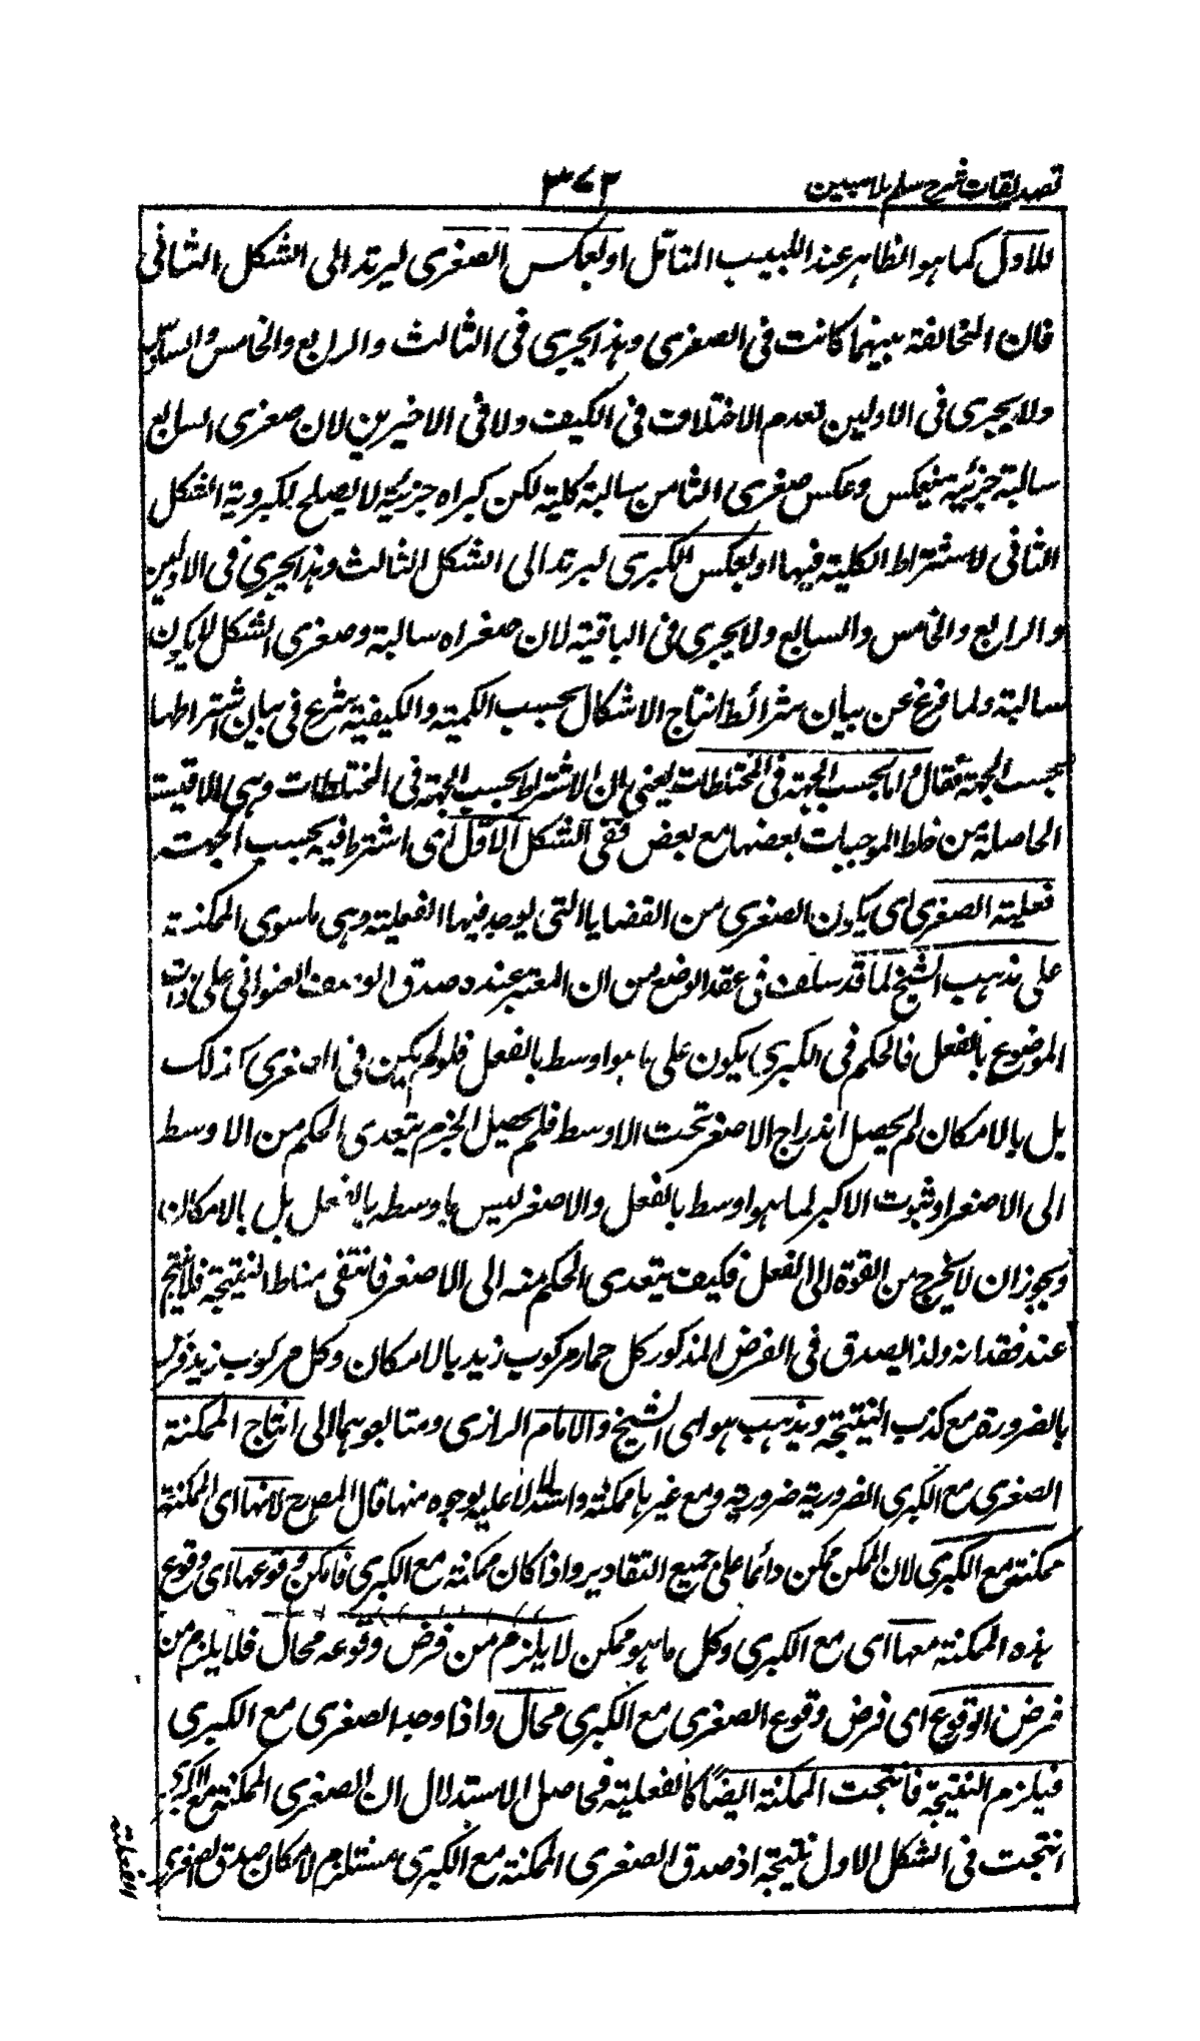 تصدیقات شرح سلم ملا مبین
۳۷۳
للاول كما هو الظاهر عند اللبيب المتأمل او بعكس الصغرى ليرتد الى الشكل الثانى
فان المخالفة بينهما كانت فى الصغرى وهذا يجرى فى الثالث والرابع والخامس والسادس
ولا يجرى فى الاولين لعدم الاختلاف فى الكيف ولا فى الاخيرين لان صغرى السابع
سالبة جزئية تنعكس وعكس صغرى الثامن سالبة كلية لكن كبراه جزئية لا يصلح لكبروية الشكل
الثانى لاشتراط الكلية فيها او بعكس الكبرى ليرتد الى الشكل الثالث وهذا يجرى فى الاولين
والرابع والخامس والسابع ولا يجرى فى الباقية لان صغراه سالبة وصغرى الشكل لا يكون
سالبة ولما فرغ عن بيان شرائط انتاج الاشكال بحسب الكمية والكيفية شرع فى بيان اشتراطها
بحسب الجهة فقال واما بحسب الجهة فى المختلطات يعنى ان الاشتراط بحسب الجهة فى المختلطات وهى الاقيسة
الحاصلة من خلط الموجهات بعضها مع بعض ففى الشكل الاول اى اشترط فيه بحسب الجهة
فعلية الصغرى اى يكون الصغرى من القضايا التى يوجد فيها الفعلية وهى ما سوى الممكنة
على مذهب الشيخ لما قد سلف فى عقد الوضع من ان المعتبر عنده صدق الوصف العنوانى على ذات
الموضوع بالفعل فالحكم فى الكبرى يكون على ما هو اوسط بالفعل فلو لم يكن فى الصغرى كذلك
بل بالامكان لم يحصل اندراج الاصغر تحت الاوسط فلم يحصل الجزم بتعدى الحكم من الاوسط
الى الاصغر او ثبوت الاكبر لما هو اوسط بالفعل والاصغر ليس باوسطه بالفعل بل بالامكان
ويجوز ان لا يخرج من القوة الى الفعل فكيف يتعدى الحكم منه الى الاصغر فانتفى مناط النتيجة فلا ينتج
عند فقدانه ولذا يصدق فى الفرض المذكور كل حمار مركوب زيد بالامكان وكل مركوب زيد فرس
بالضرورة مع كذب النتيجة ويذهب هو اى الشيخ والامام الرازى ومتابعوهما الى انتاج الممكنة
الصغرى مع الكبرى الضرورية ضرورية ومع غيرها ممكنة واستدلا عليه بوجوه منها قال المصرح لانها اى الممكنة
ممكنة مع الكبرى لان الممكن ممكن دائما على جميع التقادير واذا كان ممكنة مع الكبرى فامكن وقوعها اى وقوع
هذه الممكنة معها اى مع الكبرى وكل ما هو ممكن لا يلزم من فرض وقوعه محال فلا يلزم من
فرض الوقوع اى فرض وقوع الصغرى مع الكبرى محال واذا وجد الصغرى مع الكبرى
فيلزم النتيجة فانتجت الممكنة ايضا كالفعلية فحاصل الاستدلال ان الصغرى الممكنة مع الكبرى
انتجت فى الشكل الاول نتيجة اذ صدق الصغرى الممكنة مع الكبرى مستلزم لامكان صدق الصغرى
الفعلية